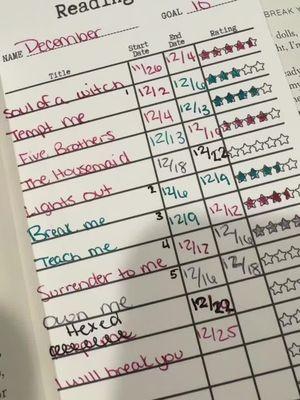 Reading
GOAL 10
NAME December
Title Start Date End Date Rating
Soul of a witch 11/26 12/4
Tempt me 1 12/2 12/6
Five Brothers 12/4 12/13
The Housemaid 12/13
Lights out 12/18 12/22
Break me 2 12/6 12/9
Teach me 3 12/9 12/12
Surrender to me 4 12/12 12/16
Own me 5 12/16 12/18
Hexed 12/22
I will break you 12/25
BREAK
dolls,